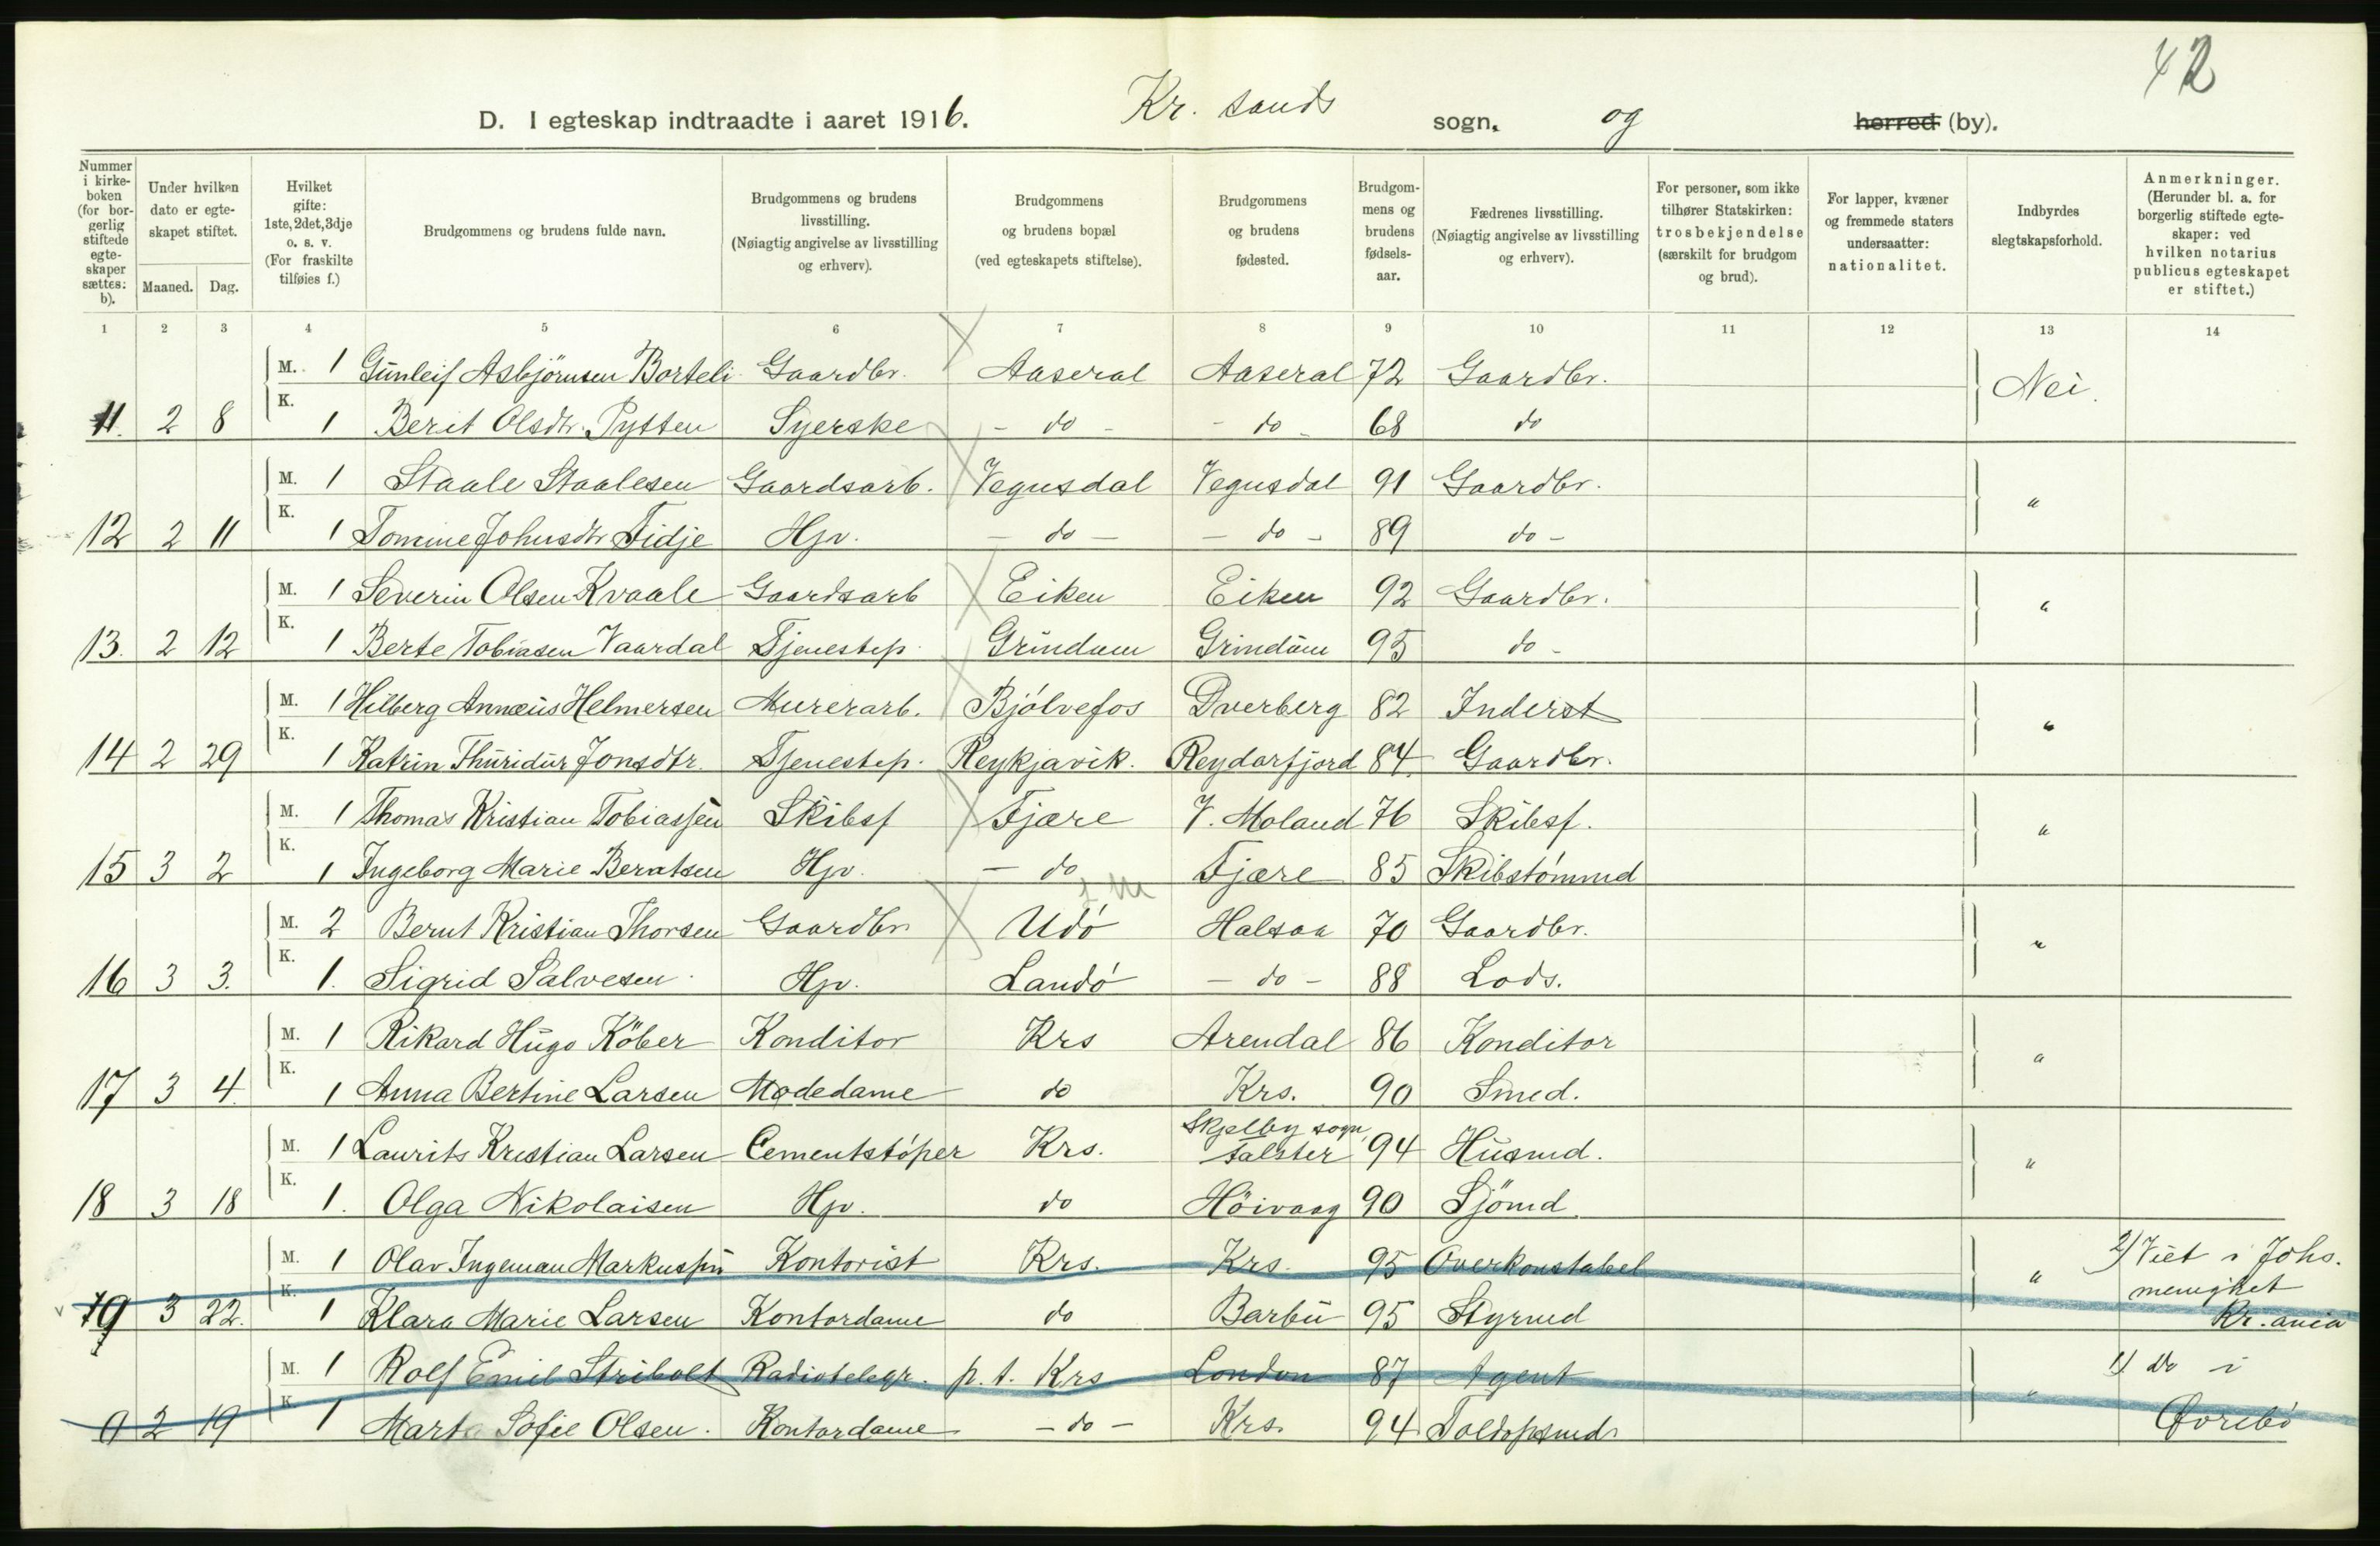 42
D. I egteskap indtraadte i aaret 1916. Kr. sands sogn, og herred (by).
Nummer i kirkeboken (for borgerlig stiftede egteskaper sættes: b). Under hvilken dato er egteskapet stiftet. Maaned. Dag. Hvilket gifte: 1ste, 2det, 3dje o. s. v. (For fraskilte tilføies f.) Brudgommens og brudens fulde navn. Brudgommens og brudens livsstilling. (Nøiagtig angivelse av livsstilling og erhverv). Brudgommens og brudens bopæl (ved egteskapets stiftelse). Brudgommens og brudens fødested. Brudgommens og brudens fødselsaar. Fædrenes livsstilling. (Nøiagtig angivelse av livsstilling og erhverv). For personer, som ikke tilhører Statskirken: trosbekjendelse (særskilt for brudgom og brud). For lapper, kvæner og fremmede staters undersaatter: nationalitet. Indbyrdes slegtskapsforhold. Anmerkninger. (Herunder bl. a. for borgerlig stiftede egteskaper: ved hvilken notarius publicus egteskapet er stiftet.)
1 2 3 4 5 6 7 8 9 10 11 12 13 14
M. 1 Gunleif Asbjörnsen Borteli Gaardbr. Aaseral Aaseral 72 Gaardbr. Nei.
11. 2 8 K. 1 Berit Olsdtr. Pytten Syerske - do - - do - 68 do
M. 1 Staale Staalesen Gaardsarb. Vegusdal Vegusdal 91 Gaardbr. "
12 2 11 K. 1 Tomine Johnsdtr Tidje Hjv. - do - - do - 89 do -
M. 1 Severin Olsen Kvaale Gaardsarb Eiken Eiken 92 Gaardbr. "
13. 2 12 K. 1 Berte Tobiasen Vaardal Tjenestep. Grindum Grindum 95 do -
M. 1 Hilberg Annæus Helmersen Murerarb. Bjölvefos Dverberg 82 Inderst "
14 2 29 K. 1 Katrin Thuridur Jonsdtr. Tjenestep. Reykjavik. Reydarfjord 84 Gaardbr.
M. 1 Thomas Kristian Tobiassen Skibsf Fjære V. Moland 76 Skibsf. "
15 3 2 K. 1 Ingeborg Marie Berntsen Hjv. - do Fjære 85 Skibstömmd
M. 2 Bernt Kristian Thorsen Gaardbr Udö Halsaa 70 Gaardbr. "
16 3 3. K. 1. Sigrid Salvesen Hjv. Landö - do - 88 Lods.
M. 1 Rikard Hugo Köber Konditor Krs Arendal 86 Konditor "
17 3 4. K. 1 Anna Bertine Larsen Modedame do Krs. 90 Smed.
M. 1 Laurits Kristian Larsen Cementstöper Krs. Skjelby sogn, Falster 94 Husmd. "
18 3 18 K. 1. Olga Nikolaisen Hjv. do Höivaag 90 Sjömd.
M. 1 Olav Ingeman Markussen Kontorist Krs. Krs. 95 Overkonstabel " 2) Viet i Johs. menighet
19 3 22. K. 1 Klara Marie Larsen Kontordame do Barbu 95 Styrmd Kr.ania
M. 1 Rolf Emil Stribolt Radiotelegr. p.t. Krs London 87 Agent " 1) Do i
9 2 19 K. 1 Marta Sofie Olsen. Kontordame - do - Krs. 94 Toldopsmd. Øvrebö